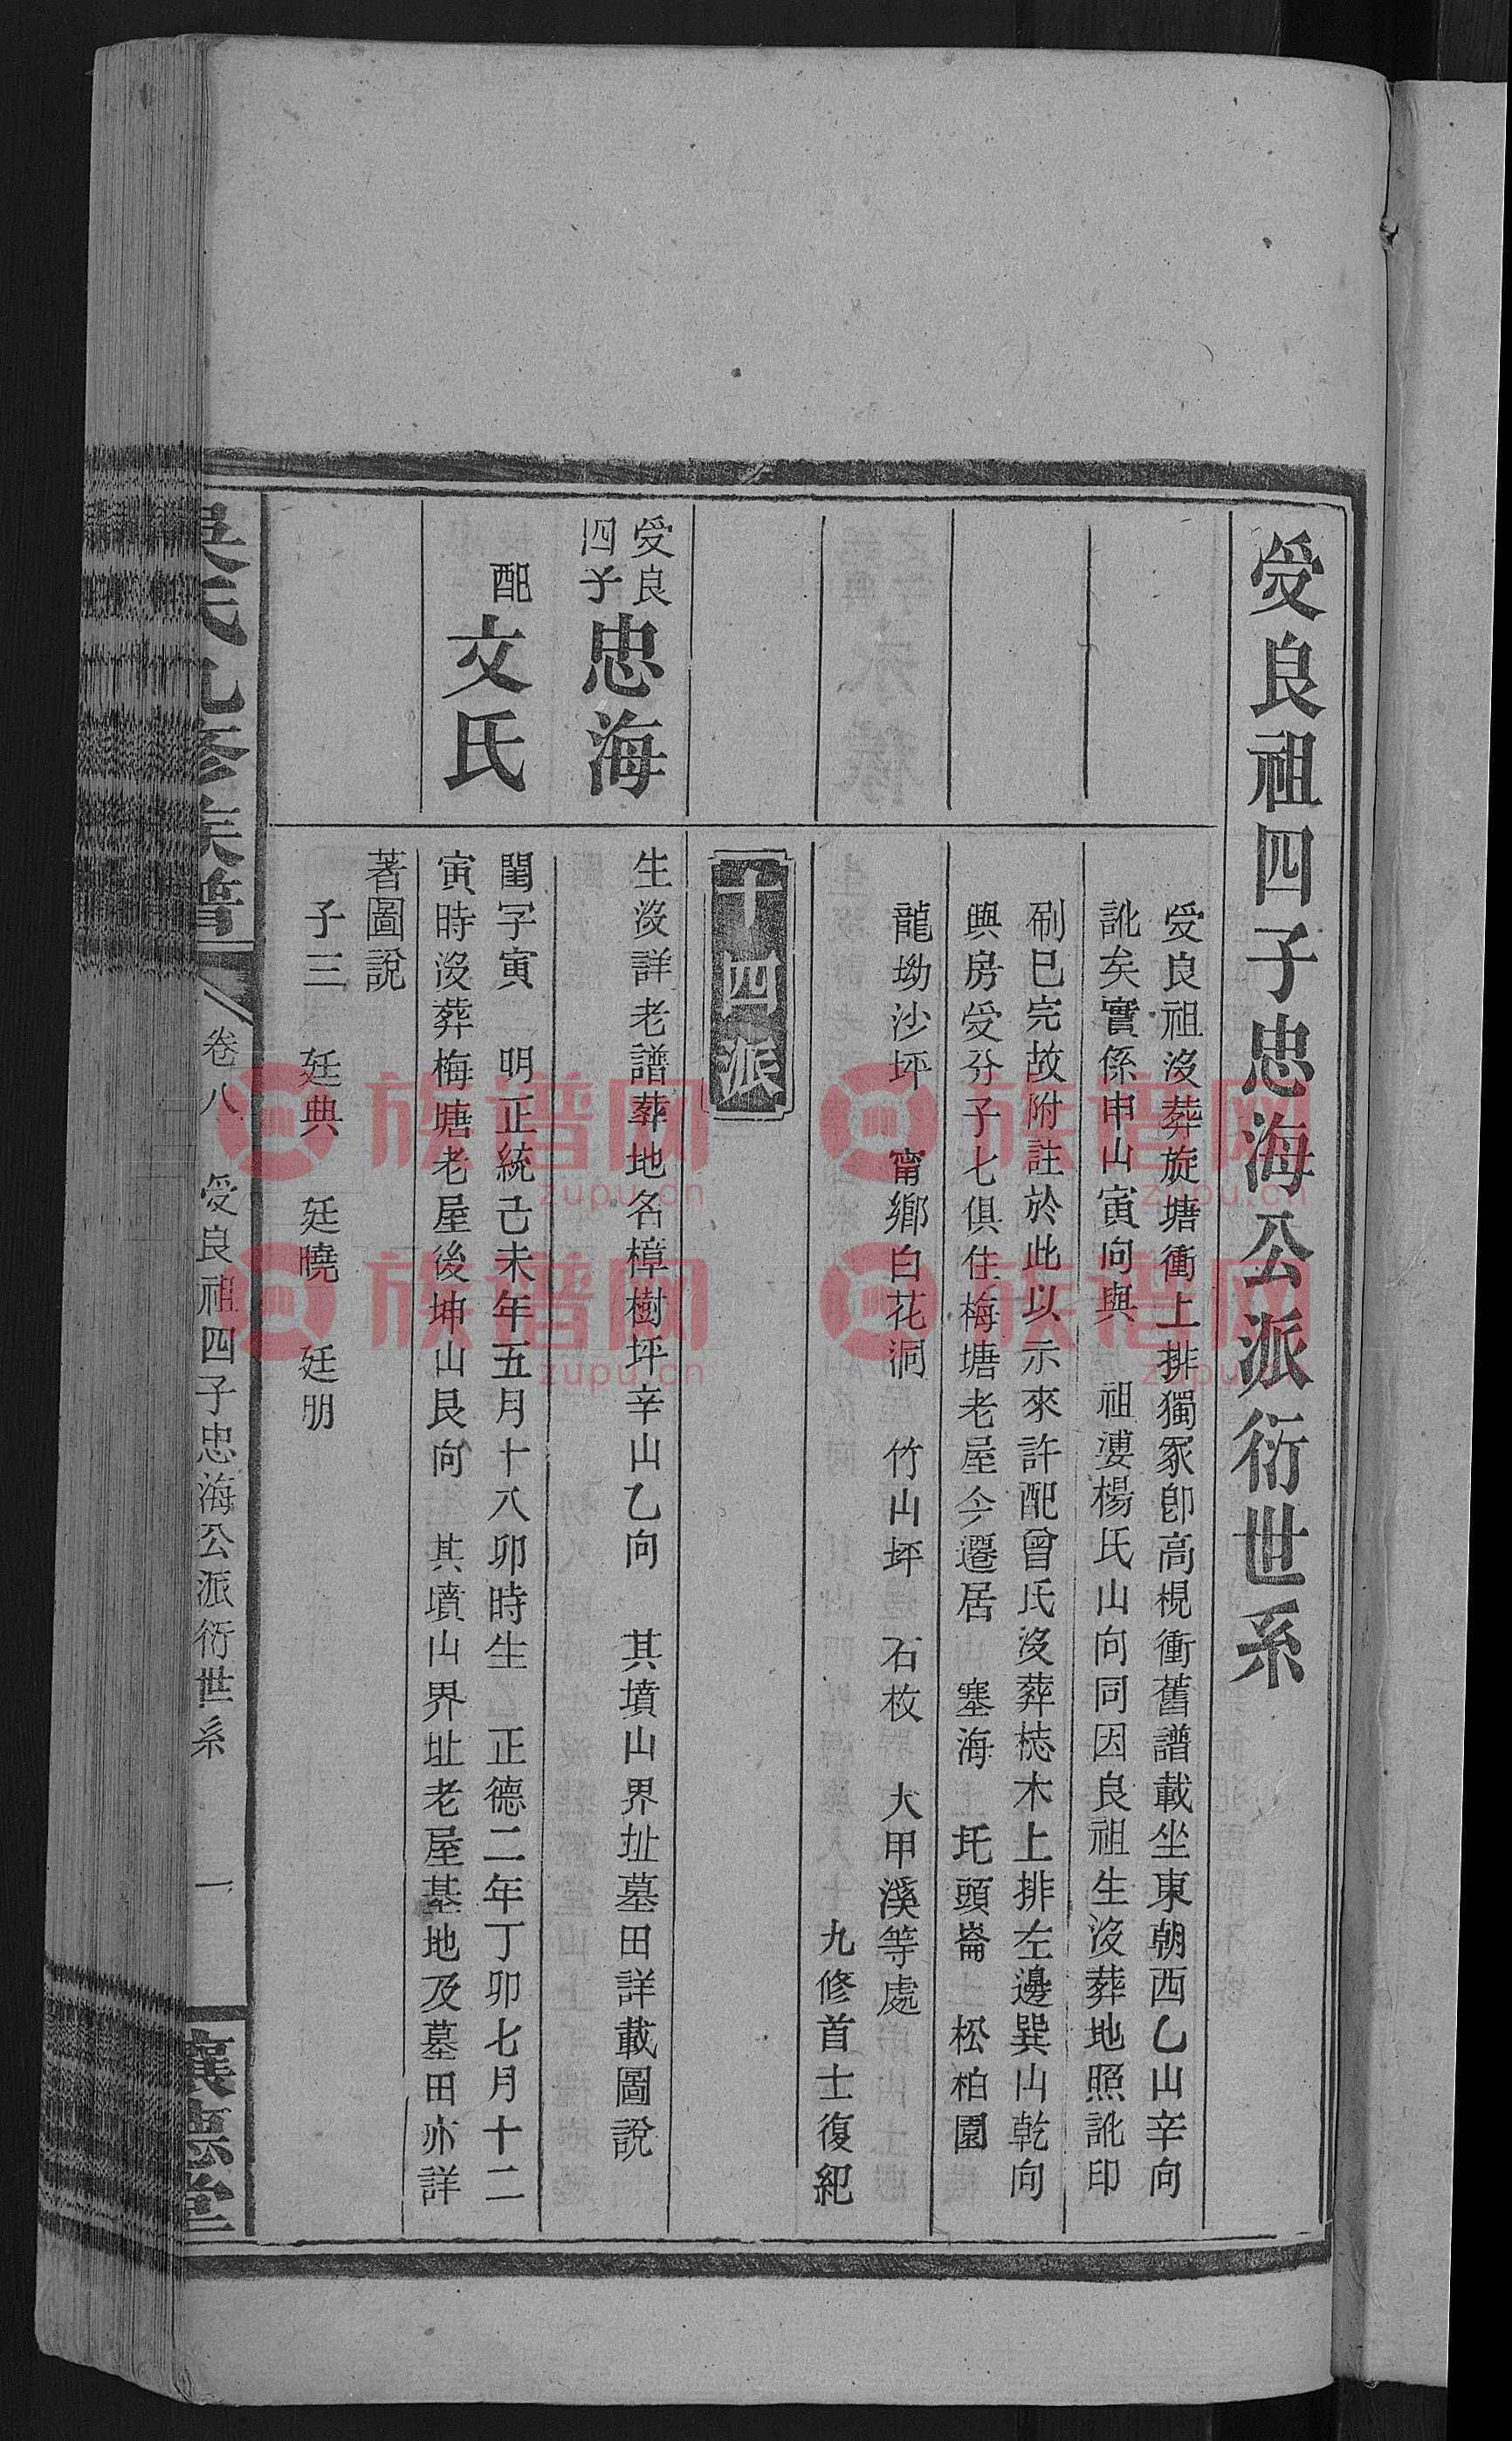 受良祖四子忠海公派衍世系
受良祖沒葬旋塘衝上排獨冢卽高梘衝舊譜載坐東朝西乙山辛向
訛矣實係申山寅向與 祖婆楊氏山向同因良祖生沒葬地照訛印
刷已完故附註於此以示來許配曾氏沒葬梽木上排左邊巽山乾向
興房受分子七俱住梅塘老屋今遷居 塞海 圫頭崙 松柏園
龍坳沙坪 甯鄉白花洞 竹山坪 石枚 大甲溪等處
九修首士復紀
十四派
受良
四子
忠海
生沒詳老譜葬地名樟樹坪辛山乙向 其墳山界址墓田詳載圖說
配
文氏
閨字寅 明正統己未年五月十八卯時生 正德二年丁卯七月十二
寅時沒葬梅塘老屋後坤山艮向 其墳山界址老屋基地及墓田亦詳
著圖說
子三 廷典 廷曉 廷朋
吳氏九修族譜
卷八 受良祖四子忠海公派衍世系 一
讓德堂
族谱网
zupu.cn
族谱网
zupu.cn
族谱网
zupu.cn
族谱网
zupu.cn